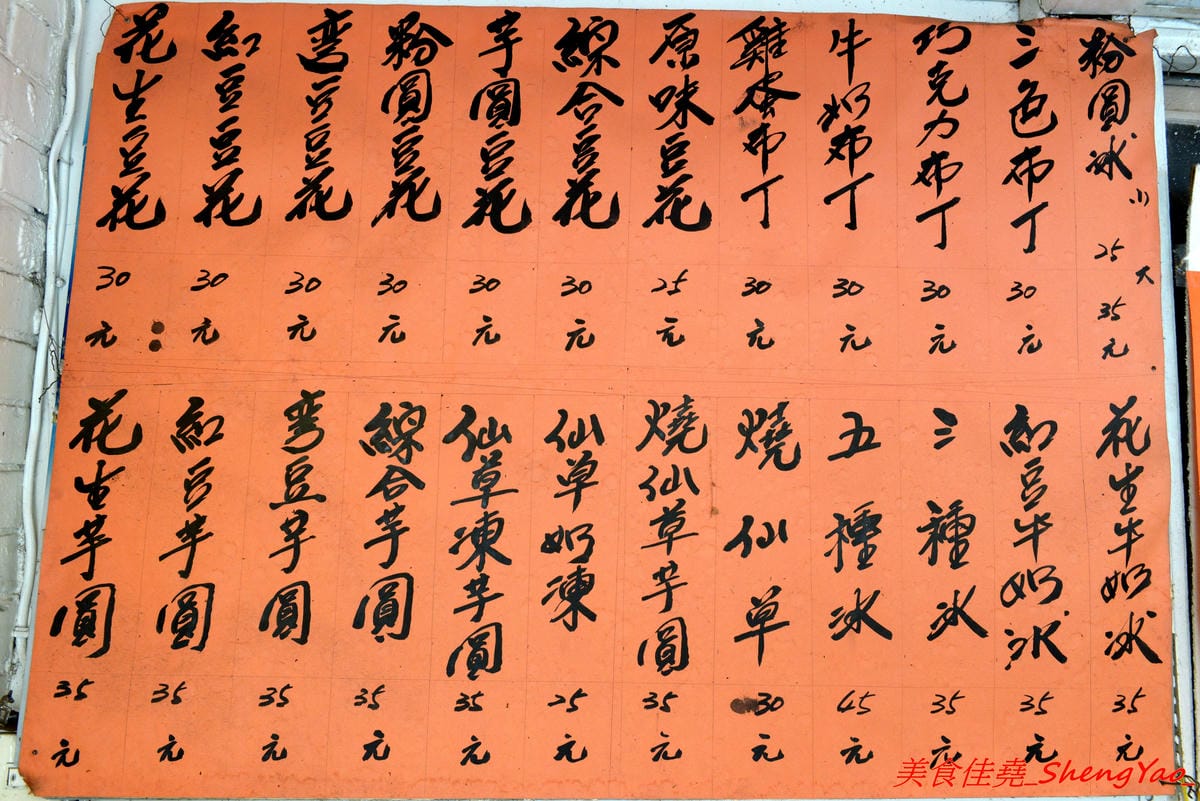 粉圓冰 小25 大35元
三色布丁 30元
巧克力布丁 30元
牛奶布丁 30元
雞蛋布丁 30元
原味豆花 25元
綜合豆花 30元
芋圓豆花 30元
粉圓豆花 30元
弯豆豆花 30元
紅豆豆花 30元
花生豆花 30元
花生牛奶冰 35元
紅豆牛奶冰 35元
三種冰 35元
五種冰 45元
燒仙草 30元
燒仙草芋圓 35元
仙草奶凍 25元
仙草凍芋圓 35元
綜合芋圓 35元
弯豆芋圓 35元
紅豆芋圓 35元
花生芋圓 35元
美食佳堯_ShengYao